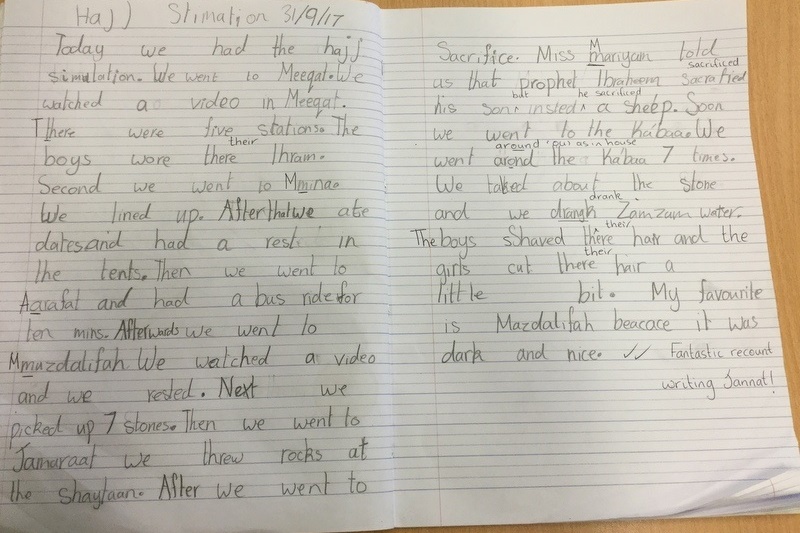 Hajj Stimation 31/9/17
Today we had the hajj
simulation. We went to Meeqat. We
watched a video in Meeqat.
There were five stations. The
their
boys wore there Ihram.
Second we went to Mminao
We lined up. After that we ate
dates and had a rest in
the tents. Then we went to
Aarafat and had a bus ride for
ten mins. Afterwards we went to
Mmuzdalifah We watched a video
and we rested. Next we
picked up 7 stones. Then we went to
Jamaraat we threw rocks at
the shaytaan. After we went to
Sacrifice. Miss Mariyam told
sacrificed
us that prophet Ibraheem sacrafied
but he sacrificed
his son^ insted^ a sheep. Soon
we went to the Kabaa. We
around 'put as in house
went arond the Kabaa 7 times.
We talked about the stone
drank
and we drangk Zamzam water.
their
The boys Sshaved there hair and the
their
girls cut there hair a
little bit. My favourite
is Mazdalifah beacace it was
dark and nice. ✓✓ Fantastic recount
writing Jannat!